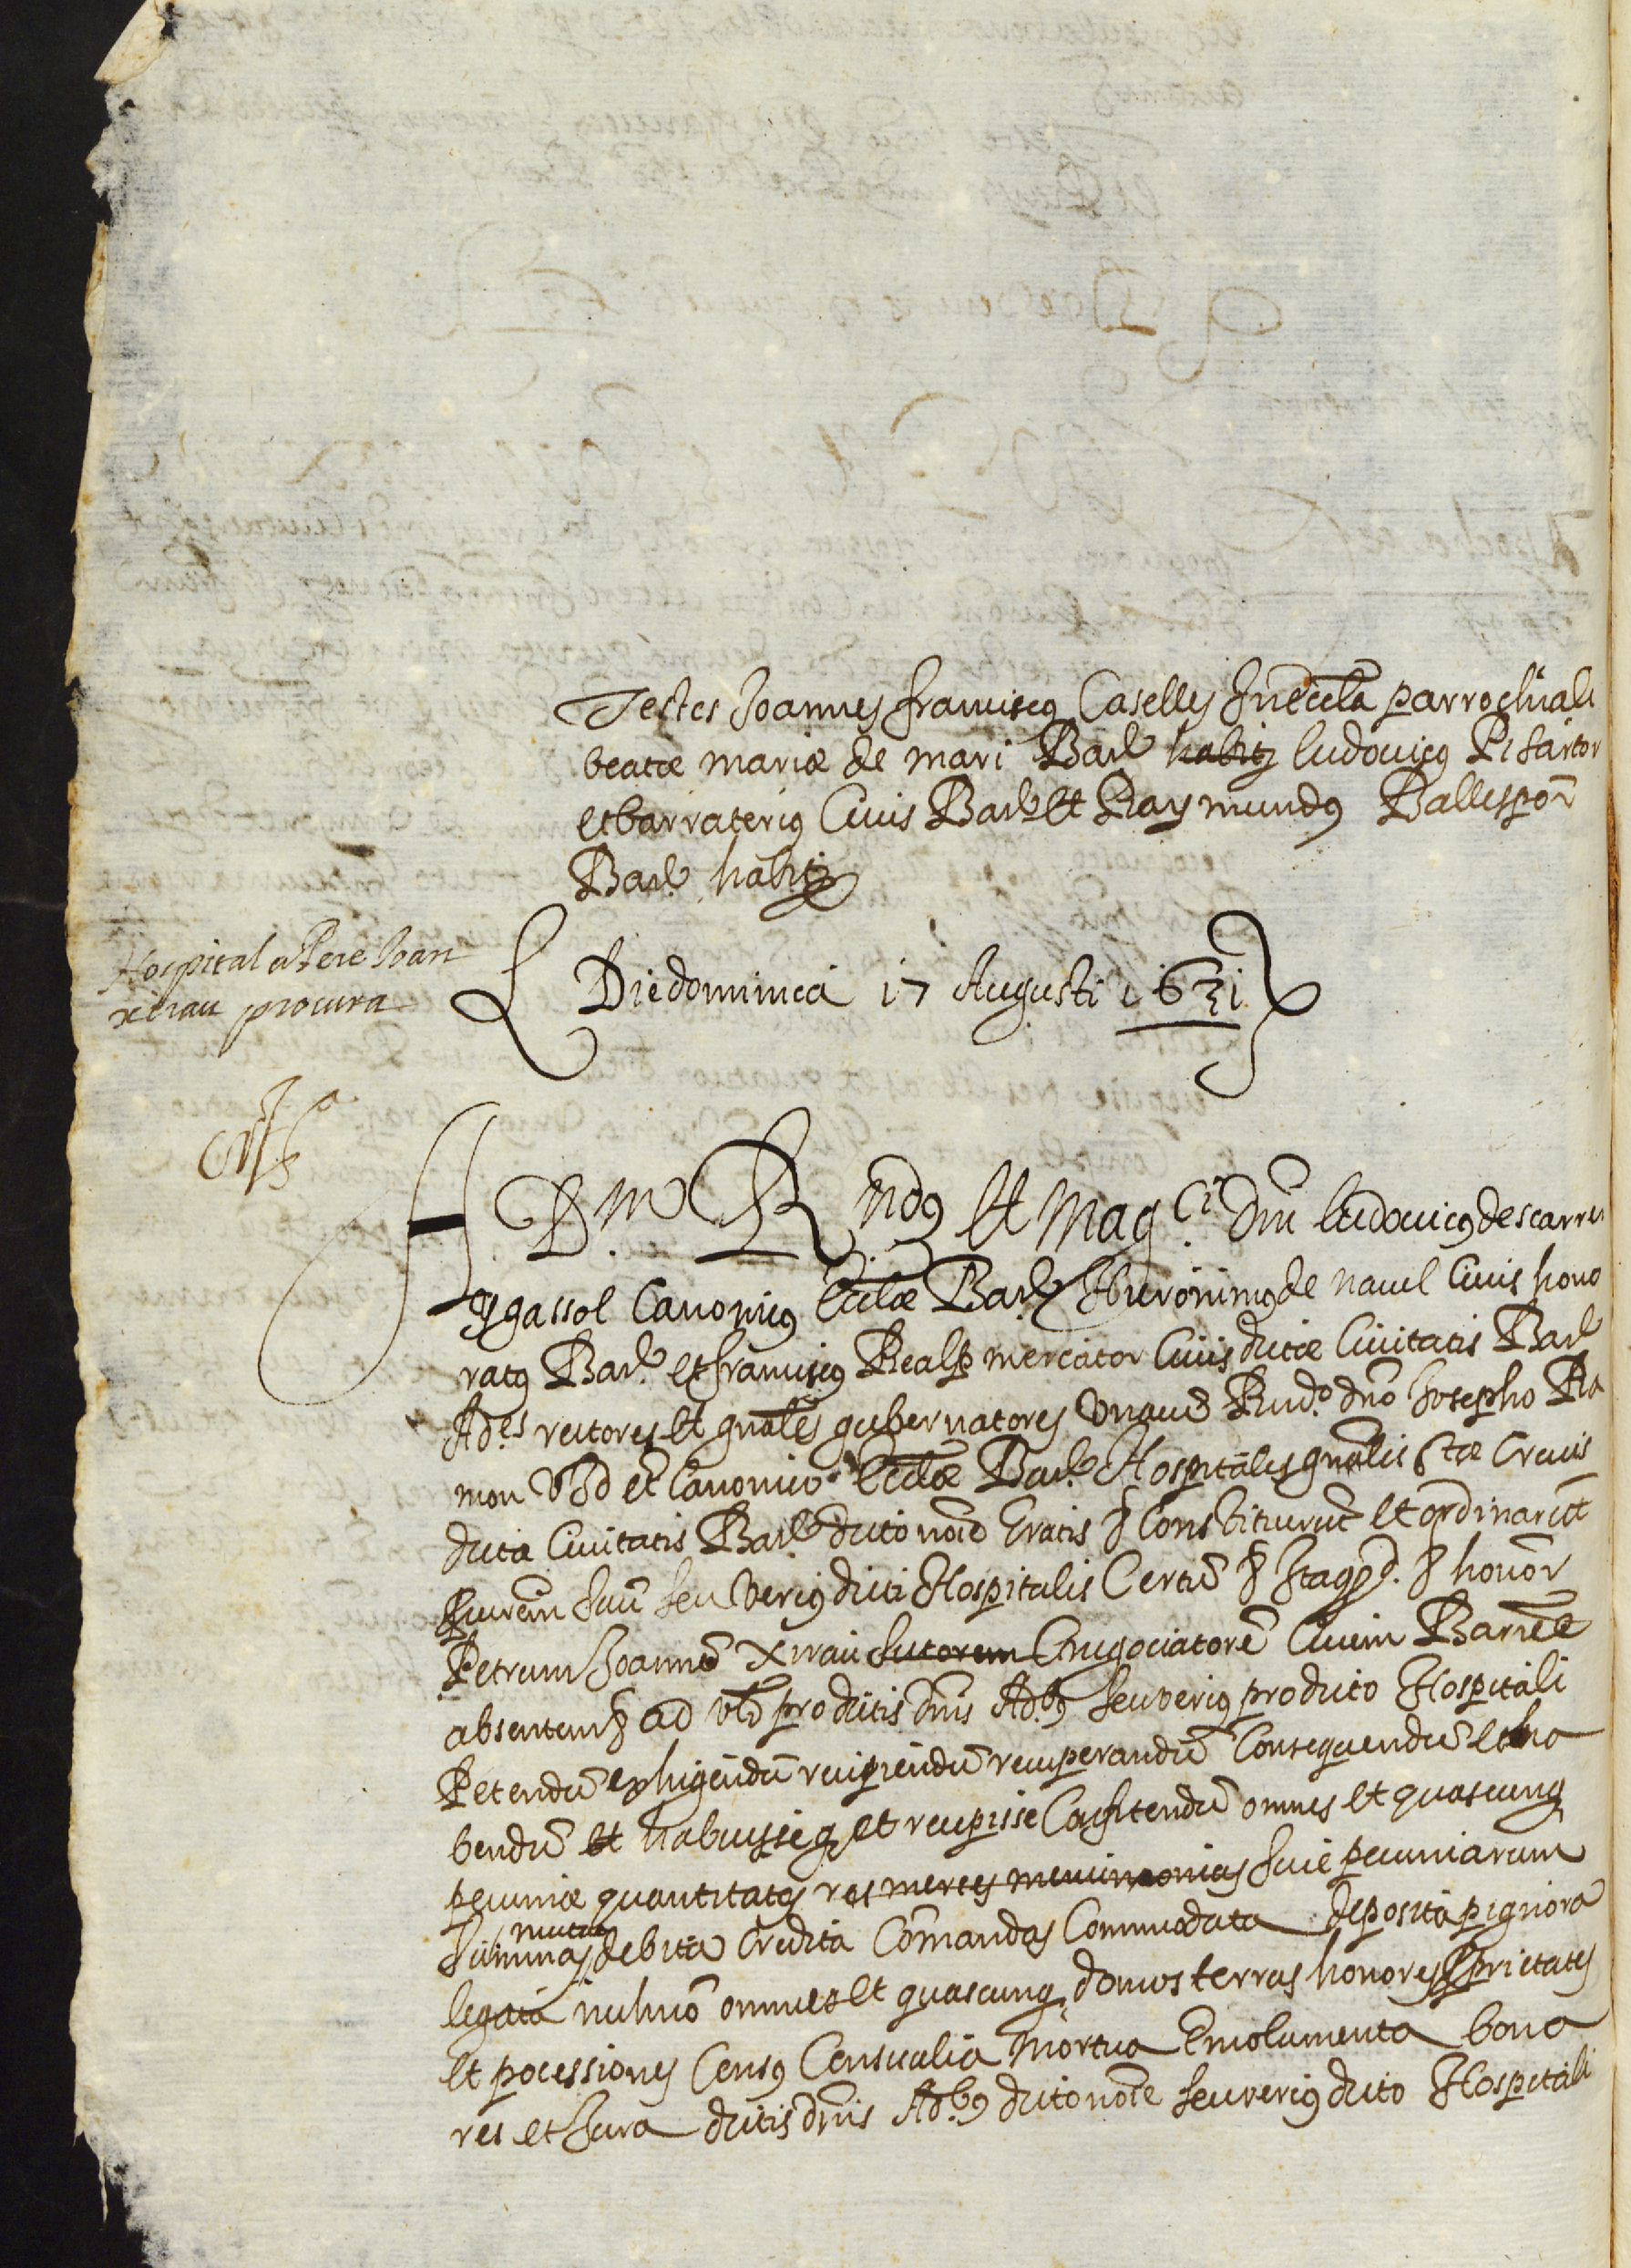 Testes Joannes franciscus Caselles In eccla parrochiali
beatæ mariæ de mari Barᵉ habis ludovicus Pi sartor
et barraterius Civis Barᵉ et Raymundus Ballesp̃or
Barᵉ habis
Hospital a Pere Joan
xirau procura
Die dominica 17 Augusti 1631
A Dm R ndus et Mag.ci Dni ludovicus descarre
y gassol Canonicus Ecclæ Barᵉ Hieronimus de navel Civis hono
ratus Barᵉ et franciscus Realp mercator Civis dictæ Civitatis Barᵉ
Ad.es rectores et gnales gubernatores una cũ Rnd.º dño Josepho Ra
mon VJd et Canonico Ecclæ Barᵉ Hospitalis gnalis Stæ Crucis
dicta Civitatis Barᵉ dicto noïe Gratis & Constituerũt et ordinarũt
Procurem Suũ Seu Verius dicti Hospitalis Certũ & Itaqd. & honor
Petrum Joannẽ Xirau sutorem & negociatorẽ Civem Barnẽ
absentem & ad vld pro dictis dnis Ad.bus seu verius pro dicto Hospitali
Petendũ exhigendũ recipiendũ recuperandũ Consequendũ et ha
bendũ et habuisseq et recepisse Confitendũ omnes et quascunq
pecuniæ quantitates res merces mercimonias sive pecuniarum
Summas mutua debita credita Comandas Commodata deposita pignora
legata nichno omnes et quascunq domos terras honores p̃prietates
et pocessiones Census Censualia Mortua Emolumenta bona
res et Jura dictis dnis Ad.bus dicto noïe seu verius dicto Hospitali